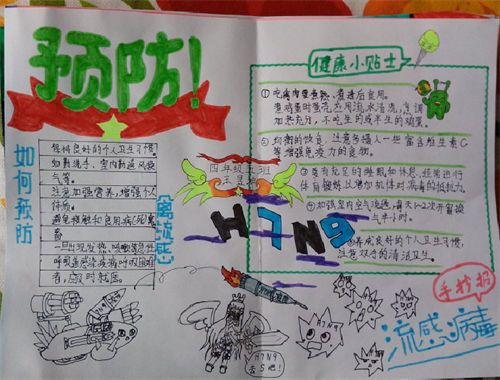 预防!
如何预防
保持良好的个人卫生习惯,
如勤洗手、室内勤通风换
气等。
注意加强营养,增强个人
体质。
避免接触和食用病(死)禽
畜
一旦出现发热、咳嗽等急性
呼吸道感染疾病呼吸困难
者,应及时就医。
禽流感
四年级五班
H7N9
健康小贴士
① 吃禽肉要煮熟、煮透后食用。
食鸡蛋时蛋壳应用流水清洗,烹调
加热充分,不吃生的或半生的鸡蛋。
② 均衡的饮食,注意多摄入一些富含维生素C
等增强免疫力的食物。
③ 要有充足的睡眠和休息,经常进行
体育锻炼,以增加机体对病毒的抵抗力。
④ 加强室内空气流通,每天1~2次开窗换
气半小时。
⑤ 养成良好的个人卫生习惯,
注意双手的清洁卫生。
手抄报
流感病毒
H7N9
去S吧!